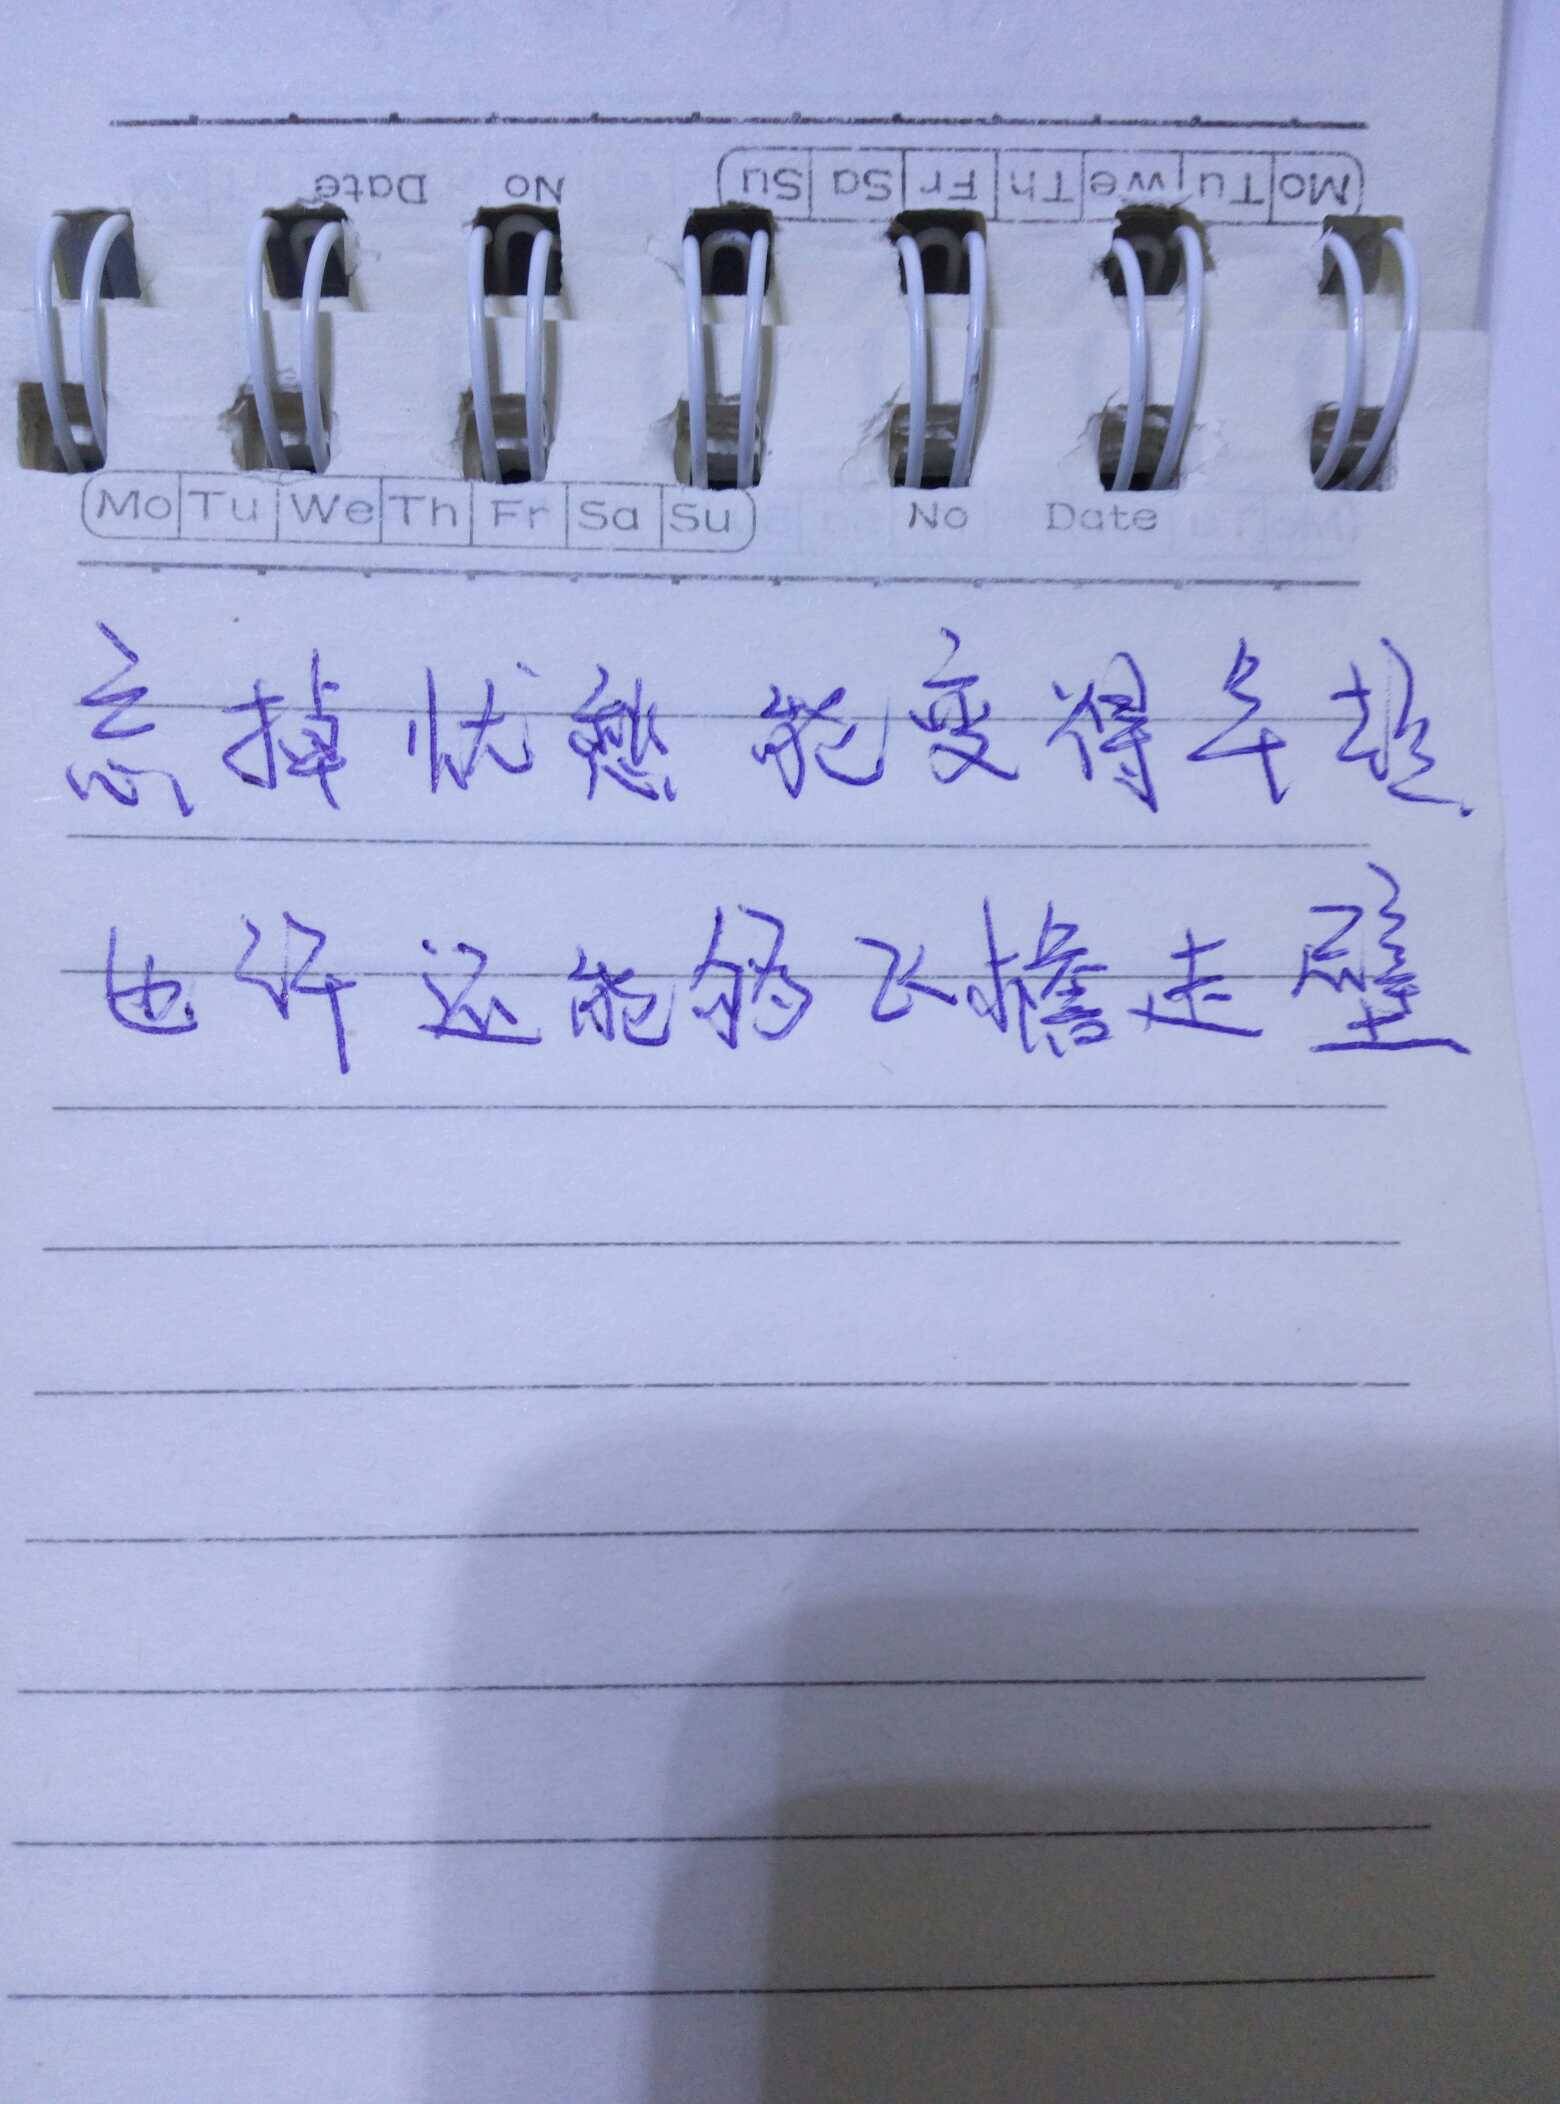 Mo Tu We Th Fr Sa Su No Date
Mo Tu We Th Fr Sa Su No Date
忘掉忧愁能变得年轻
也许还能够飞檐走壁